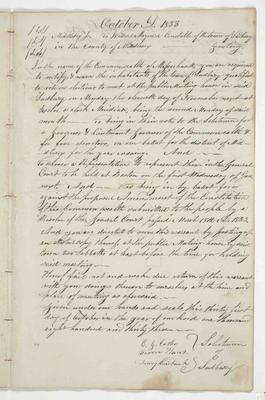 October A.D. 1833
Middlesex Ss. To Constable of the town of Sudbury
in the County of Middlesex Greeting
In the name of the Commonwealth of Massachusetts, you are required
to notify & warn the inhabitants of the town of Sudbury qualified
to vote in elections to meet at the public Meeting house in said
Sudbury on Monday the eleventh day of November next at
o'clock being the second Monday of said
month — To bring in their votes to the Selectmen for
a Governor & Lieutenant Governor of the Commonwealth &
for five Senators, for the district of Mid-
dlesex for the year ensuing And
To choose a Representative to represent them in the General
Court to be held at Boston on the first Wednesday of Jan
next And To bring in by ballot for or
against the proposed Amendment of the Constitution
of this Commonwealth submitted to the people by a
Resolve of the General Court passed March 1833
And you are directed to serve this warrant by posting up
an attested copy thereof at the public Meeting house in said
town two Sabbaths at least before the time for holding
said meeting.
Hereof fail not and make due return of this warrant
with your doings thereon to ourselves at the time and
place of meeting as aforesaid.
Given under our hands and seals this thirty first
day of October in the year of our Lord one thousand
eight hundred and thirty three
Selectmen
of
Sudbury